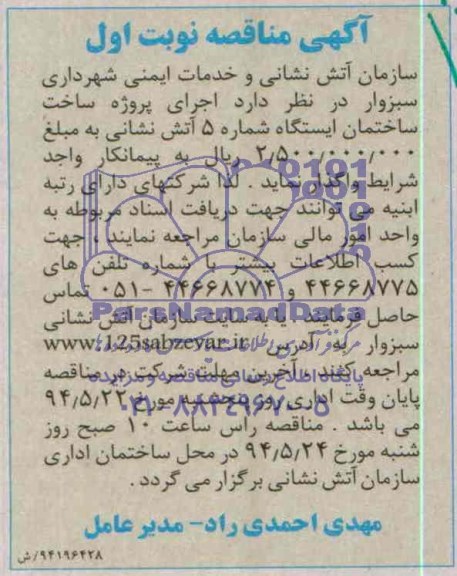 آگهی مناقصه نوبت اول
سازمان آتش نشانی و خدمات ایمنی شهرداری
سبزوار در نظر دارد اجرای پروژه ساخت
ساختمان ایستگاه شماره ۵ آتش نشانی به مبلغ
۲/۵۰۰/۰۰۰/۰۰۰ ریال به پیمانکار واجد
شرایط واگذار نماید . لذا شرکتهای دارای رتبه
ابنیه می توانند جهت دریافت اسناد مربوطه به
واحد امور مالی سازمان مراجعه نمایند ، جهت
کسب اطلاعات بیشتر با شماره تلفن های
۴۴۶۶۸۷۷۵ و ۴۴۶۶۸۷۷۴ -۰۵۱ تماس
حاصل فرمایند . یا به سایت سازمان آتش نشانی
سبزوار به آدرس www.125sabzevar.ir
مراجعه کنند . آخرین مهلت شرکت در مناقصه
پایان وقت اداری روز پنجشنبه مورخ ۹۴/۵/۲۲
می باشد . مناقصه راس ساعت ۱۰ صبح روز
شنبه مورخ ۹۴/۵/۲۴ در محل ساختمان اداری
سازمان آتش نشانی برگزار می گردد .
مهدی احمدی راد- مدیر عامل
۹۴۱۹۶۴۲۸/ش
ParsNamadData
پایگاه اطلاع رسانی مناقصه و مزایده
۰۲۱-۸۸۳۴۹۶۷۰-۵